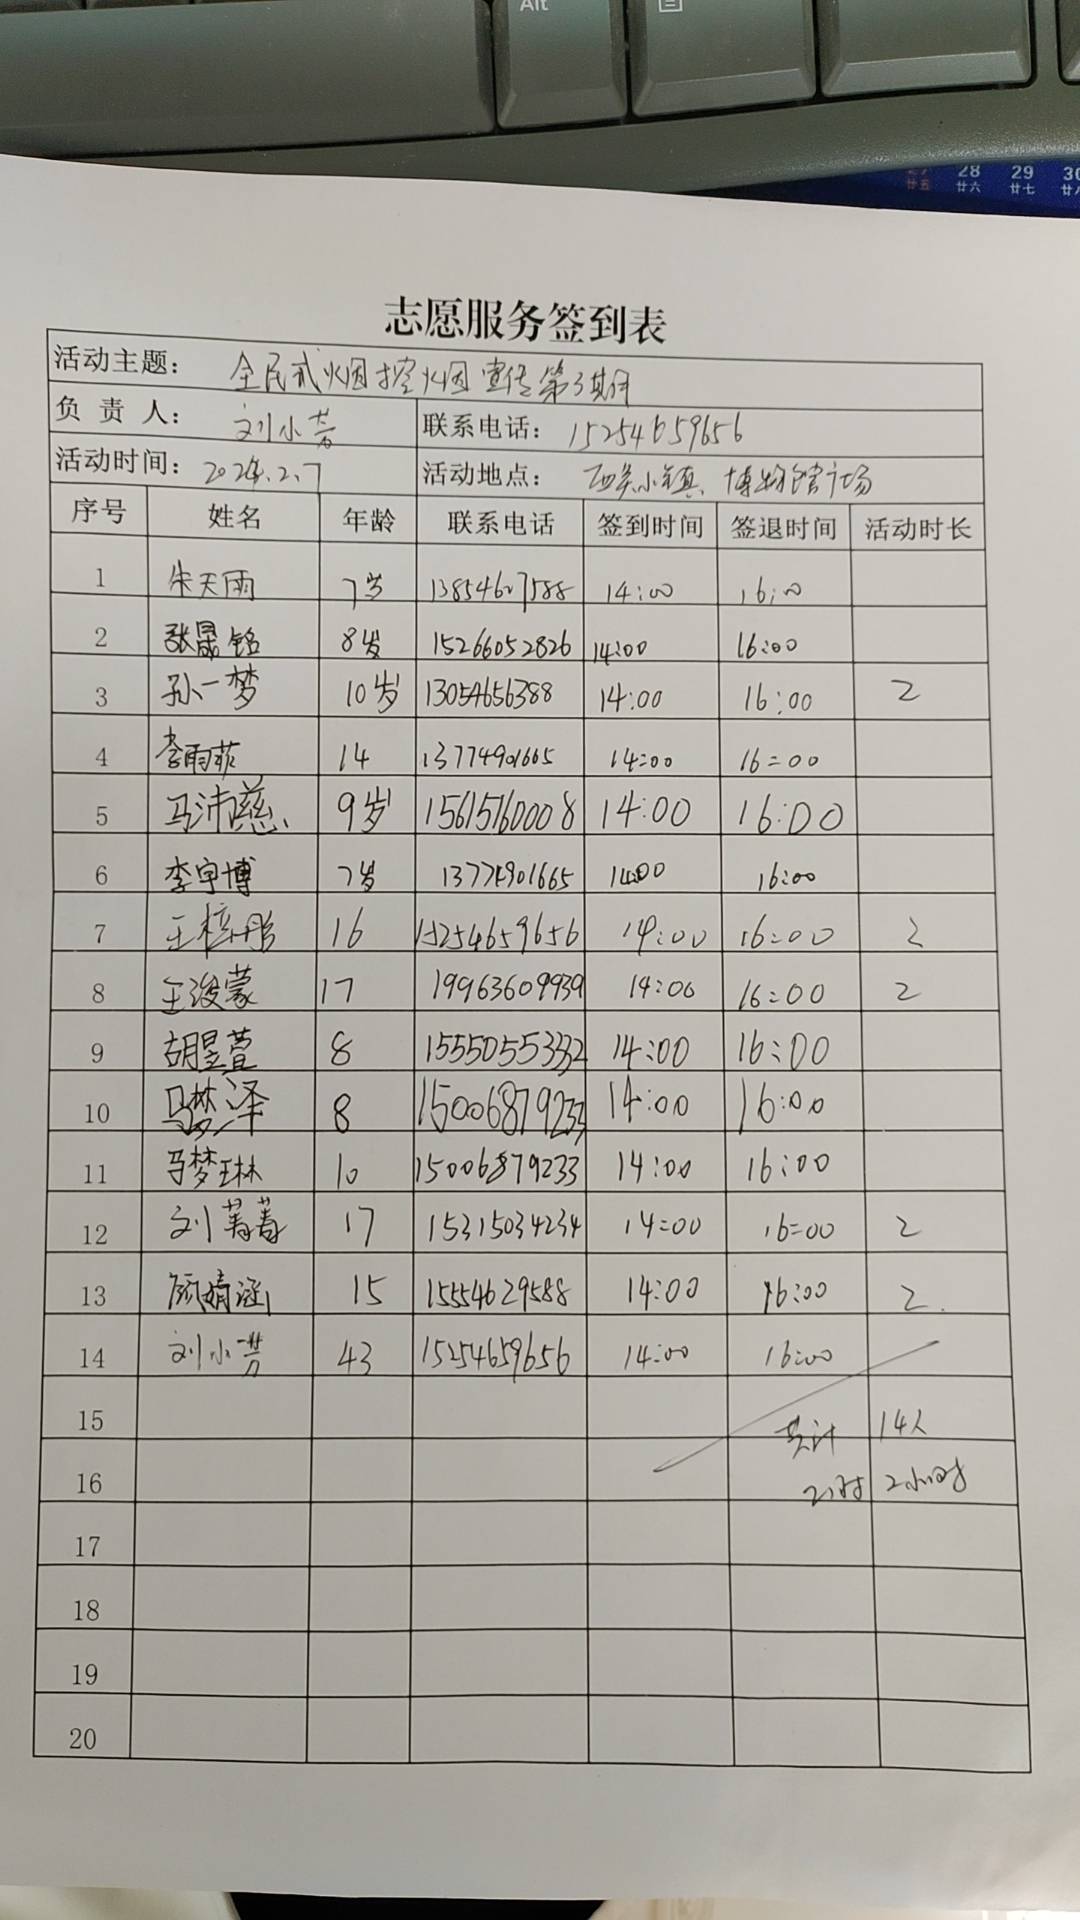 Alt
27 28 29 30
廿五 廿六 廿七 廿八
志愿服务签到表
活动主题： 全民戒烟控烟宣传第3期
负责人： 刘小芳 联系电话： 15254659656
活动时间： 2024.2.7 活动地点： 西关小镇、博物馆广场
序号 姓名 年龄 联系电话 签到时间 签退时间 活动时长
1 朱天雨 7岁 13854607588 14:00 16:00
2 张晟铭 8岁 15266052826 14:00 16:00
3 孙一梦 10岁 13054656388 14:00 16:00 2
4 李雨菲 14 13774901665 14:00 16:00
5 马沛慈 9岁 15615160008 14:00 16:00
6 李宇博 7岁 13774901665 14:00 16:00
7 王梓彤 16 15254659656 14:00 16:00 2
8 王浚蒙 17 19963609939 14:00 16:00 2
9 胡星萱 8 15550555332 14:00 16:00
10 马梦泽 8 15006879233 14:00 16:00
11 马梦琳 10 15006879233 14:00 16:00
12 刘菁菁 17 15315034234 14:00 16:00 2
13 婧涵 15 15554629588 14:00 16:00 2
14 刘小芳 43 15254659656 14:00 16:00
15 共计 14人
16 2小时
17
18
19
20